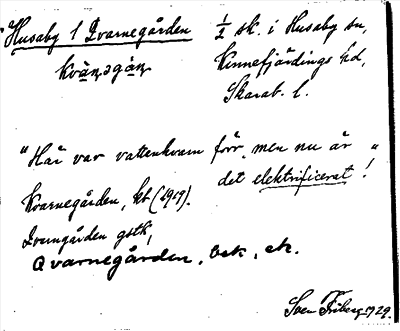 Husaby 1 Qvarnegården
½ sk. i Husaby sn,
Kinnefjärdings hd,
Skarab. l.
kvà̠ṇəgà̠ṇ
"Här var vattenkvarn förr, men nu är
det elektrificerat!"
Kvarnegården, kb (1919).
Qvarngården gstk,
Qvarnegården, bek, ek.
Sven Friberg 1929.